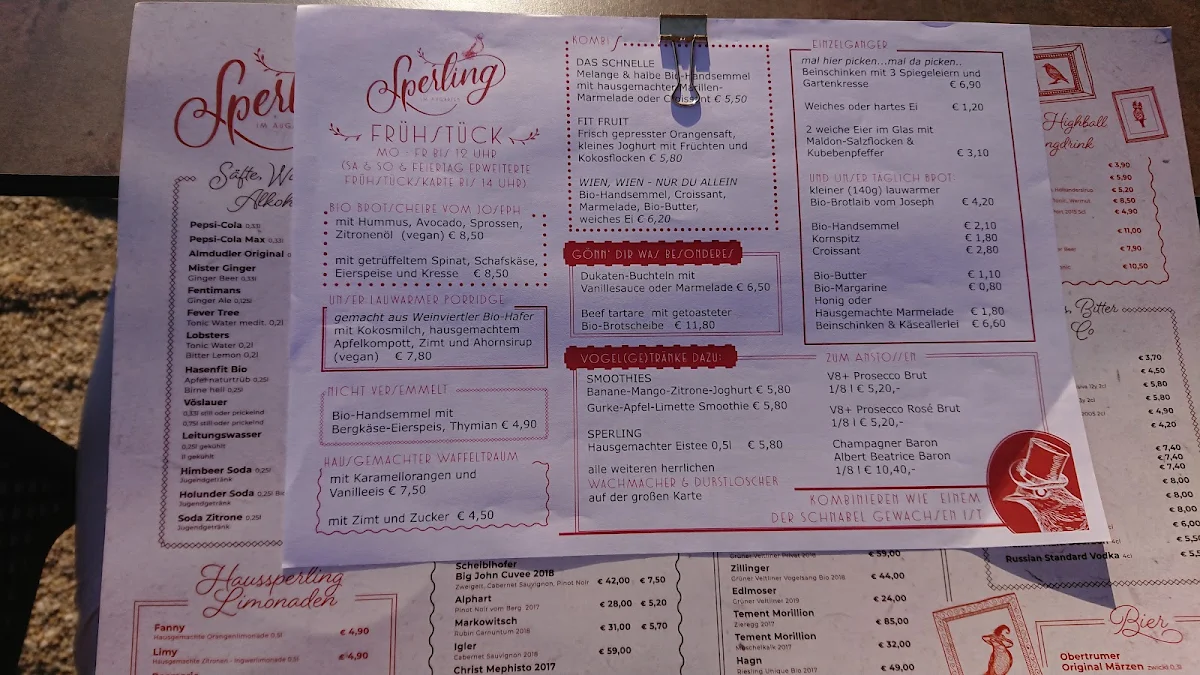 Sperling
IM AUGARTEN
FRÜHSTÜCK
MO - FR BIS 12 UHR
(SA & SO & FEIERTAG ERWEITERTE
FRÜHSTÜCKSKARTE BIS 14 UHR)
BIO BROTSCHEIBE VOM JOSEPH
mit Hummus, Avocado, Sprossen,
Zitronenöl (vegan) € 8,50
mit getrüffeltem Spinat, Schafskäse,
Eierspeise und Kresse € 8,50
UNSER LAUWARMER PORRIDGE
gemacht aus Weinviertler Bio-Hafer
mit Kokosmilch, hausgemachtem
Apfelkompott, Zimt und Ahornsirup
(vegan) € 7,80
NICHT VERSEMMELT
Bio-Handsemmel mit
Bergkäse-Eierspeis, Thymian € 4,90
HAUSGEMACHTER WAFFELTRAUM
mit Karamellorangen und
Vanilleeis € 7,50
mit Zimt und Zucker € 4,50
KOMBIS
DAS SCHNELLE
Melange & halbe Bio-Handsemmel
mit hausgemachter Marillen-
Marmelade oder Croissant € 5,50
FIT FRUIT
Frisch gepresster Orangensaft,
kleines Joghurt mit Früchten und
Kokosflocken € 5,80
WIEN, WIEN - NUR DU ALLEIN
Bio-Handsemmel, Croissant,
Marmelade, Bio-Butter,
weiches Ei € 6,20
GÖNN' DIR WAS BESONDERES
Dukaten-Buchteln mit
Vanillesauce oder Marmelade € 6,50
Beef tartare mit getoasteter
Bio-Brotscheibe € 11,80
VOGEL(GE)TRÄNKE DAZU:
SMOOTHIES
Banane-Mango-Zitrone-Joghurt € 5,80
Gurke-Apfel-Limette Smoothie € 5,80
SPERLING
Hausgemachter Eistee 0,5l € 5,80
alle weiteren herrlichen
WACHMACHER & DURSTLÖSCHER
auf der großen Karte
EINZELGÄNGER
mal hier picken...mal da picken..
Beinschinken mit 3 Spiegeleiern und
Gartenkresse € 6,90
Weiches oder hartes Ei € 1,20
2 weiche Eier im Glas mit
Maldon-Salzflocken &
Kubebenpfeffer € 3,10
UND UNSER TÄGLICH BROT:
kleiner (140g) lauwarmer
Bio-Brotlaib vom Joseph € 4,20
Bio-Handsemmel € 2,10
Kornspitz € 1,80
Croissant € 2,80
Bio-Butter € 1,10
Bio-Margarine € 0,80
Honig oder
Hausgemachte Marmelade € 1,80
Beinschinken & Käseallerlei € 6,60
ZUM ANSTOSSEN
V8+ Prosecco Brut
1/8 l € 5,20,-
V8+ Prosecco Rosé Brut
1/8 l € 5,20,-
Champagner Baron
Albert Beatrice Baron
1/8 l € 10,40,-
KOMBINIEREN WIE EINEM
DER SCHNABEL GEWACHSEN IST
Sperl
IM AUG
Säfte, Wa
Alkoh
Pepsi-Cola 0,33l
Pepsi-Cola Max 0,33l
Almdudler Original
Mister Ginger
Ginger Beer 0,33l
Fentimans
Ginger Ale 0,125l
Fever Tree
Tonic Water medit. 0,2l
Lobsters
Tonic Water 0,2l
Bitter Lemon 0,2l
Hasenfit Bio
Apfel naturtrüb 0,25l
Birne hell 0,25l
Vöslauer
0,33l still oder prickelnd
0,75l still oder prickelnd
Leitungswasser
0,25l gekühlt
1l gekühlt
Himbeer Soda 0,25l
Jugendgetränk
Holunder Soda 0,25l
Jugendgetränk
Soda Zitrone 0,25l
Jugendgetränk
Haussperling
Limonaden
Fanny
Hausgemachte Orangenlimonade 0,5l € 4,90
Limy
Hausgemachte Zitronen - Ingwerlimonade 0,5l € 4,90
Scheiblhofer
Big John Cuvee 2018 € 42,00 € 7,50
Zweigelt, Cabernet Sauvignon, Pinot Noir
Alphart € 28,00 € 5,20
Pinot Noir vom Berg 2017
Markowitsch € 31,00 € 5,70
Rubin Carnuntum 2018
Igler € 59,00
Cabernet Sauvignon 2018
Christ Mephisto 2017
Grüner Veltliner Privat 2018 € 59,00
Zillinger € 44,00
Grüner Veltliner Vogelsang Bio 2018
Edlmoser € 24,00
Grüner Veltliner 2019
Tement Morillion € 85,00
Zieregg 2017
Tement Morillion € 32,00
Muschelkalk 2017
Hagn € 49,00
Riesling Unique Bio 2017
Highball
ngdrink
€ 3,90
€ 5,90
€ 5,20
€ 8,50
€ 4,90
€ 11,00
€ 7,90
€ 10,50
, Bitter
Co
€ 3,70
€ 4,50
€ 5,80
€ 5,80
€ 4,90
€ 4,20
€ 7,40
€ 7,40
€ 7,40
€ 8,00
€ 8,00
€ 8,00
€ 6,00
€ 5,50
Russian Standard Vodka 4cl € 5,5
Bier
Obertrumer
Original Märzen zwickl 0,3l